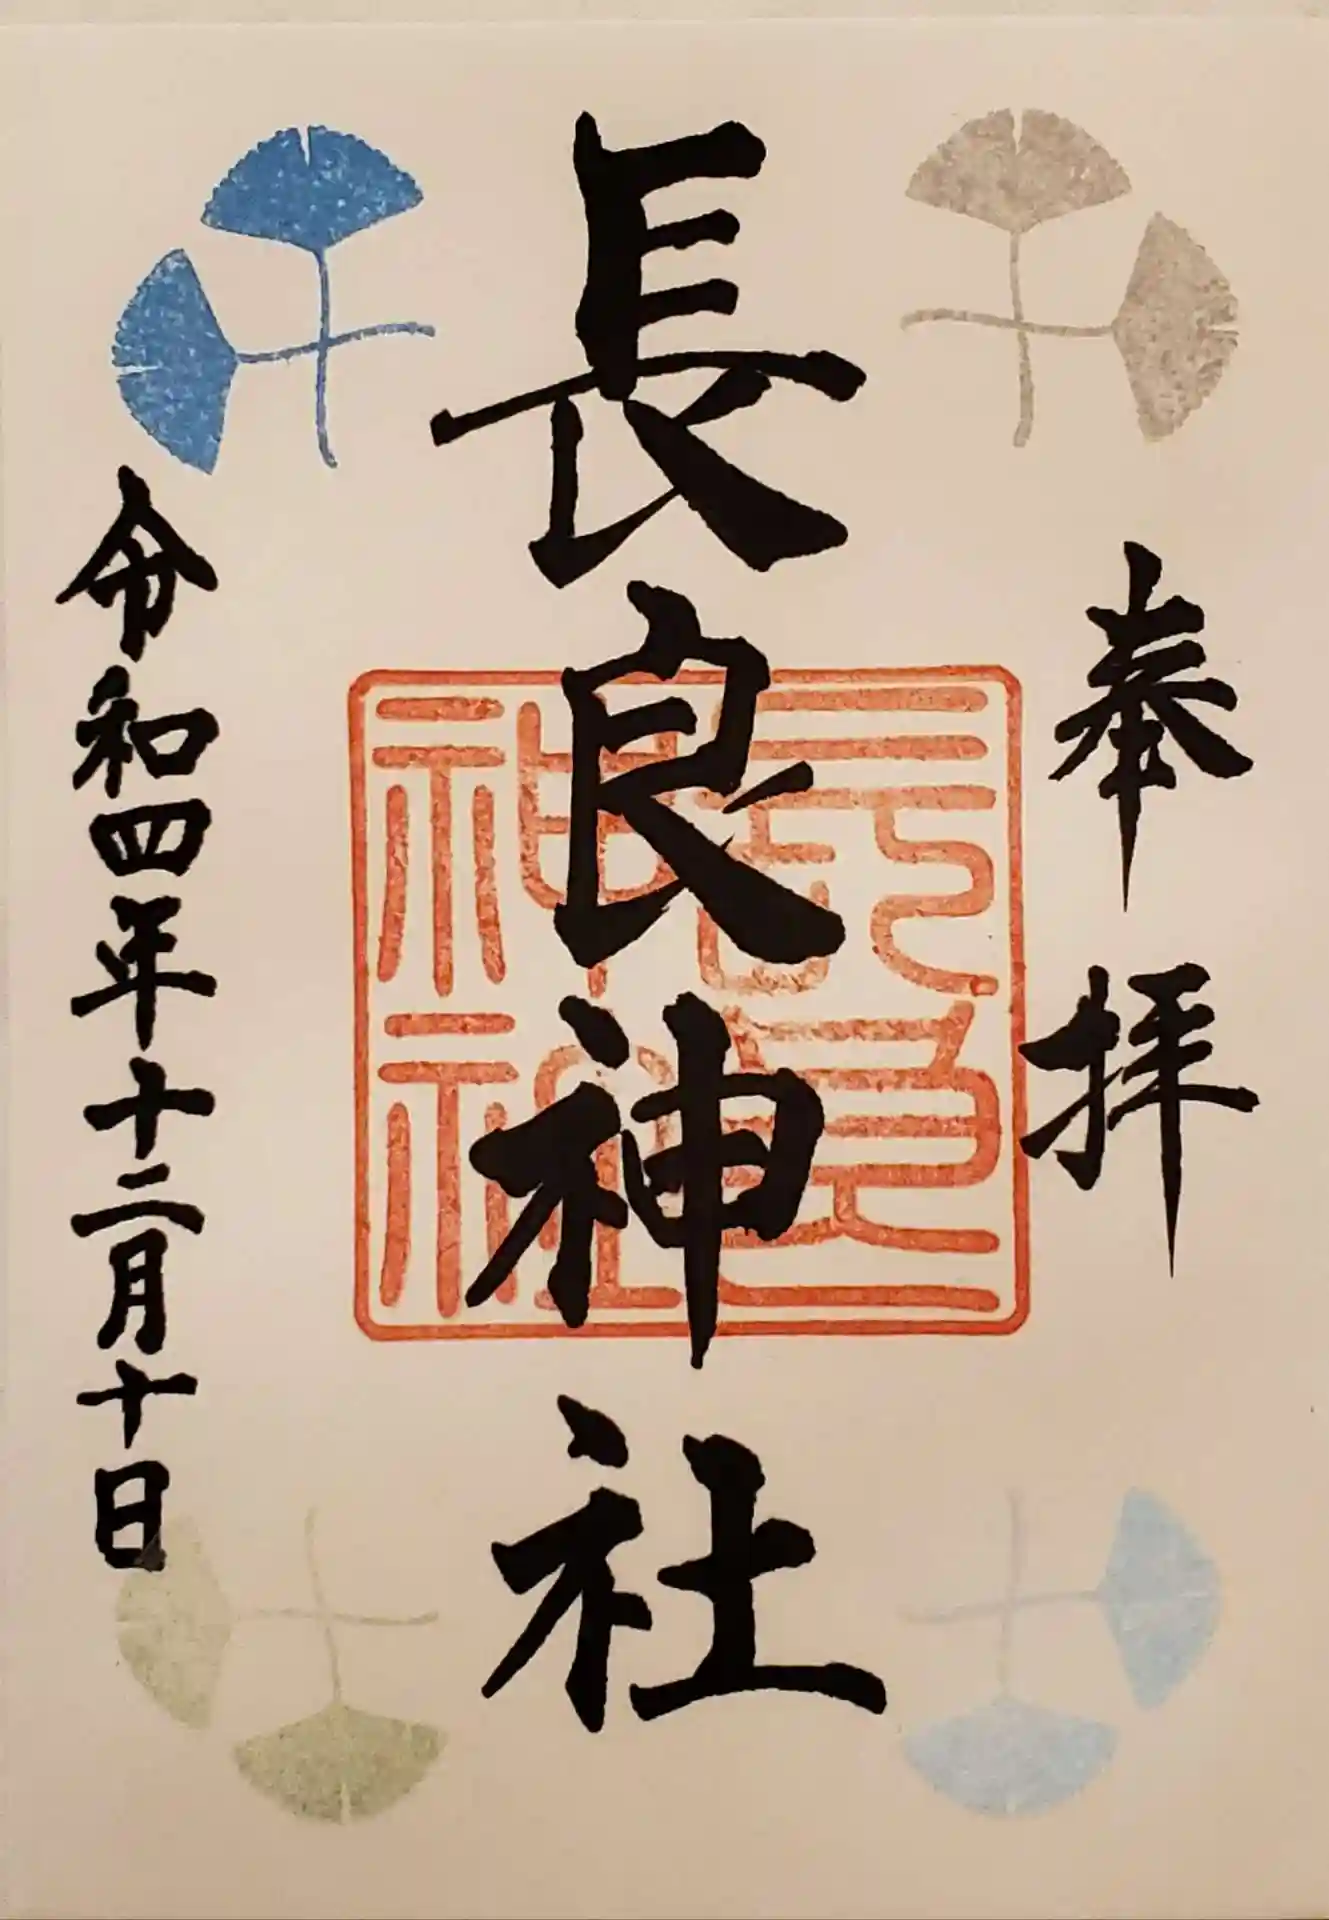 奉拝
長良神社
長良
神社
令和四年十二月十日